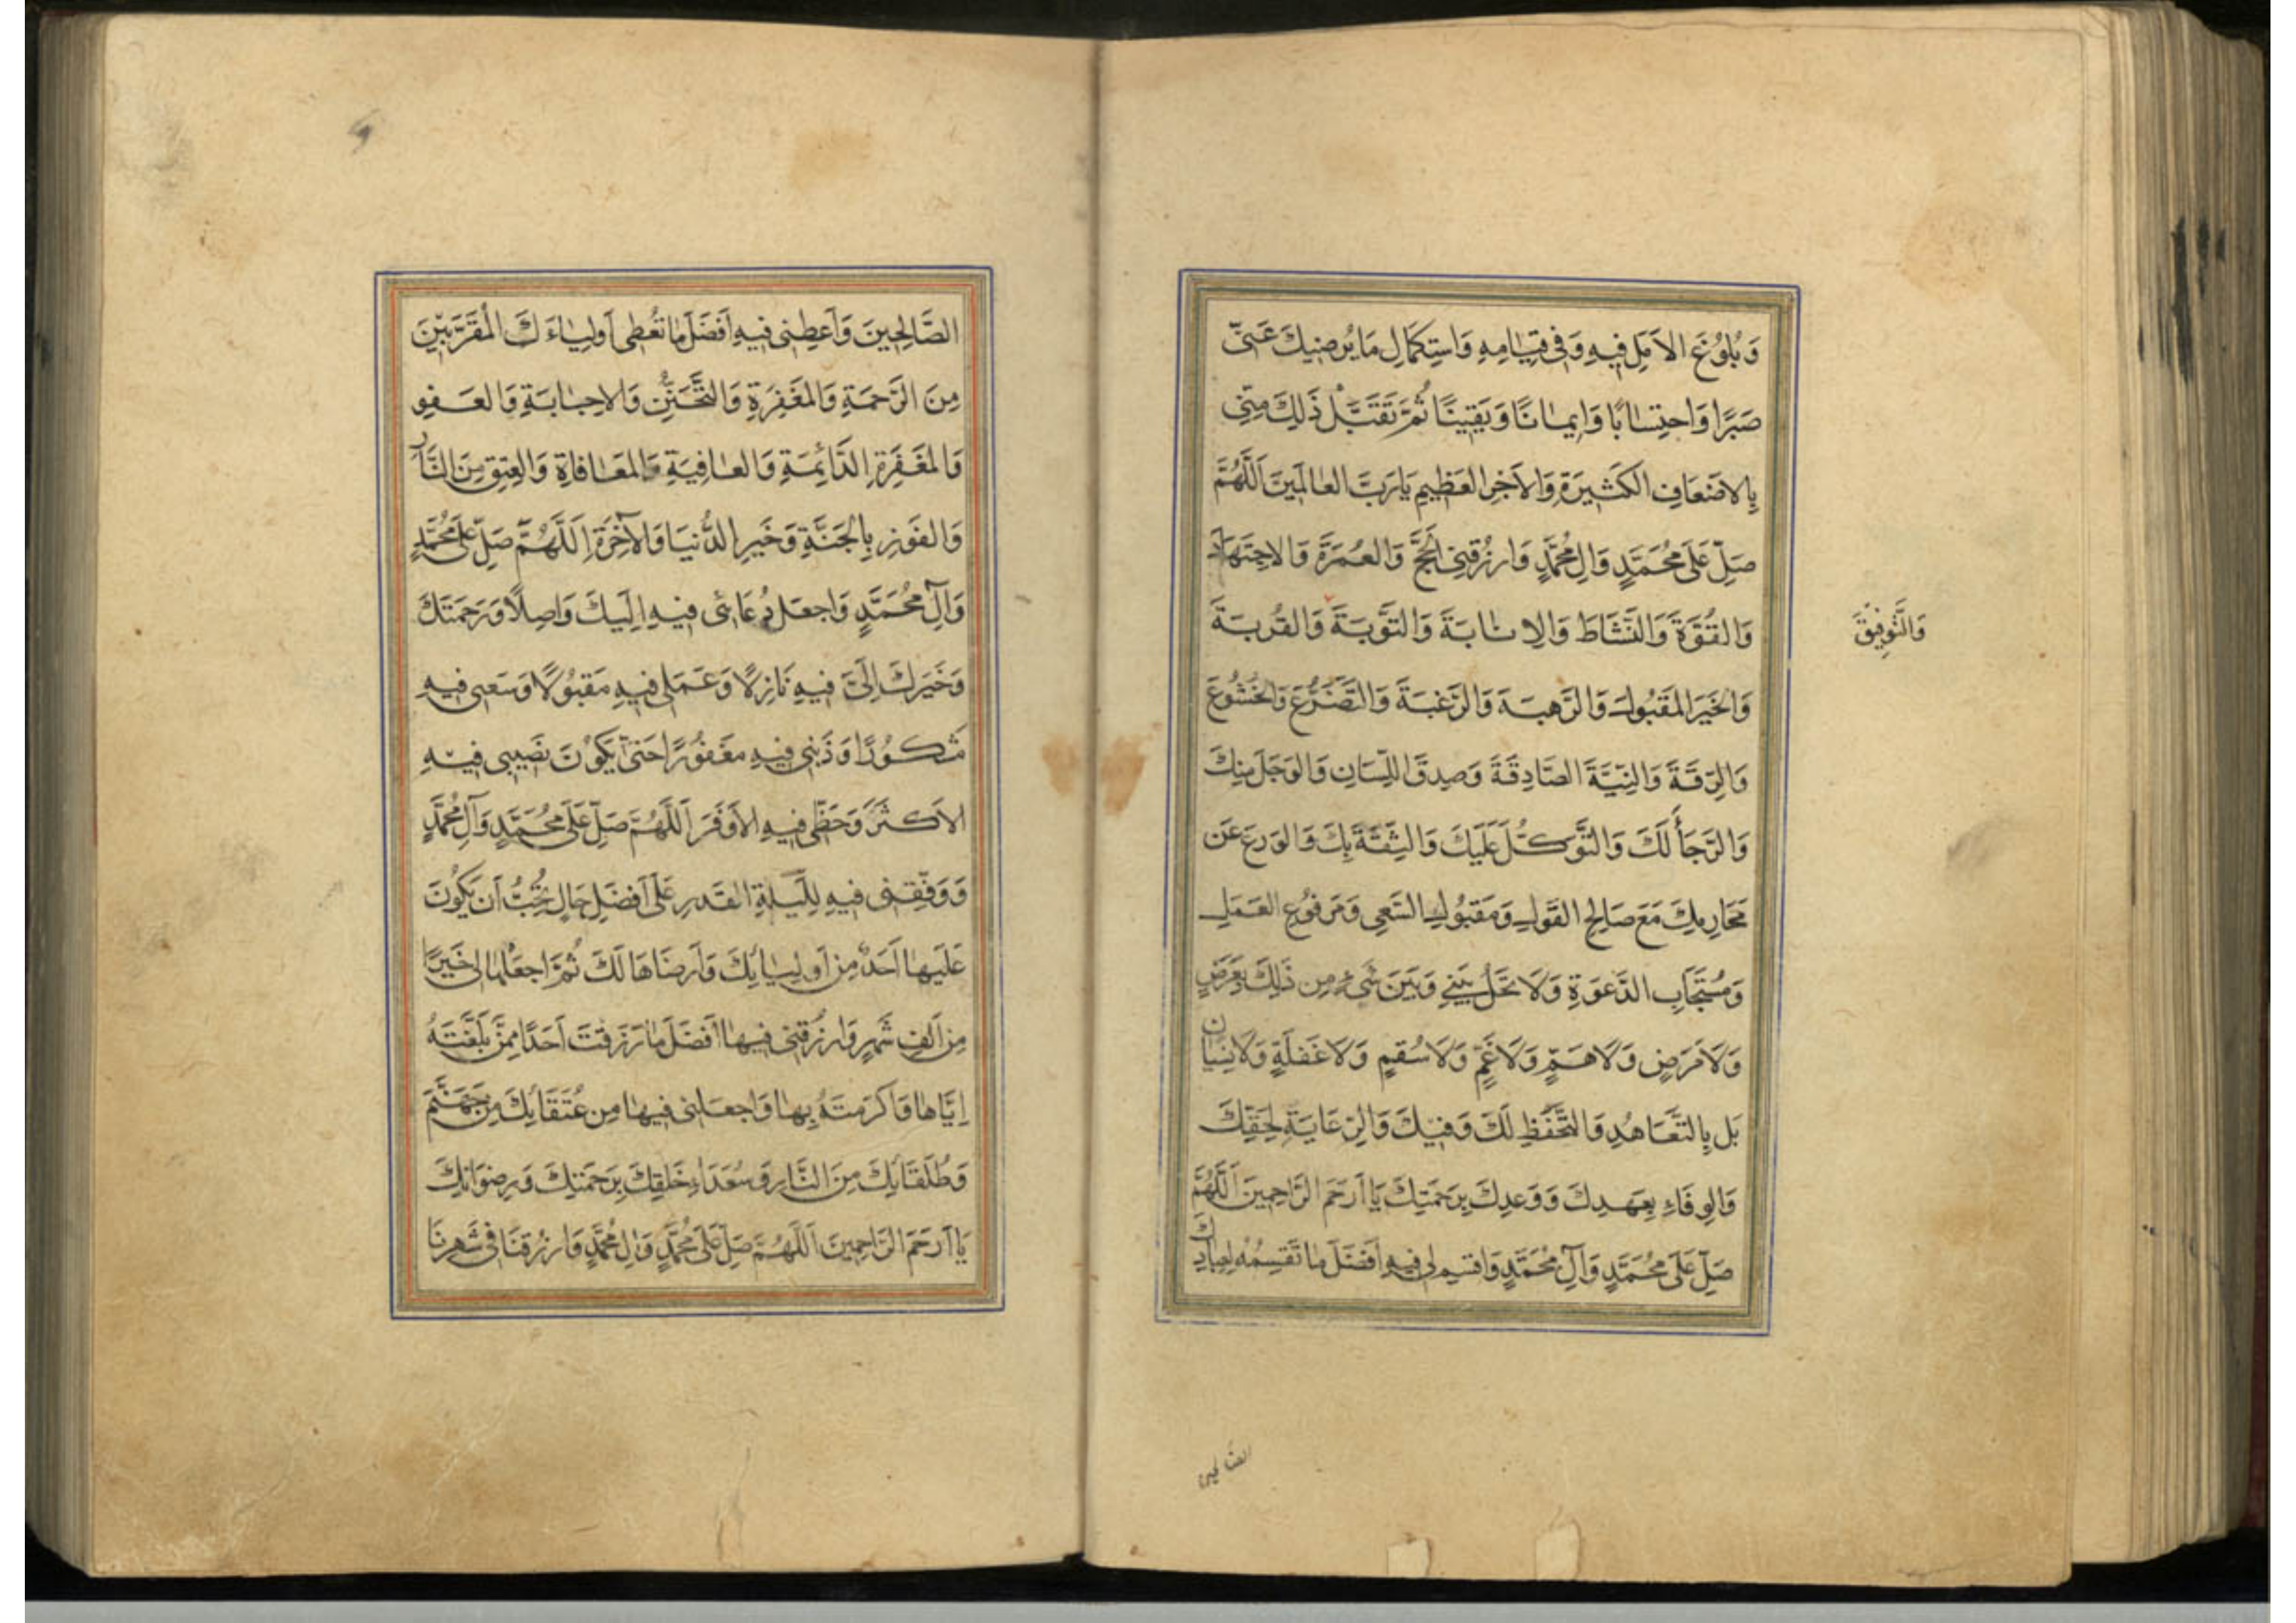 وَبُلُوغَ الاَمَلِ فِيهِ وَفِى قِيَامِهِ وَاسْتِكمَالِ مَا يُرضِيكَ عَنّى
صَبرًا وَاحتِسَابًا وَاِيمَانًا وَيَقِينًا ثُمَّ تَقَبَّل ذَلِكَ مِنِّى
بِالاَضعَافِ الكَثِيرَةِ وَالاَجرِ العَظِيمِ يَا رَبَّ العَالَمِينَ اَللَّهُمَّ
صَلِّ عَلَى مُحَمَّدٍ وَالِ مُحَمَّدٍ وَارزُقنِى الحَجَّ وَالعُمرَةَ وَالاجتِهَادَ
وَالقُوَّةَ وَالنَّشَاطَ وَالاِنَابَةَ وَالتَّوبَةَ وَالقُربَةَ
وَالتَّوفِيقَ
وَالخَيرَ المَقبُولَ وَالرَّهبَةَ وَالرَّغبَةَ وَالتَّضَرُّعَ وَالخُشُوعَ
وَالرِّقَّةَ وَالنِّيَّةَ الصَّادِقَةَ وَصِدقَ اللِّسَانِ وَالوَجَلَ مِنكَ
وَالرَّجَاءَ لَكَ وَالتَّوَكُّلَ عَلَيكَ وَالثِّقَةَ بِكَ وَالوَرَعَ عَن
مَحَارِمِكَ مَعَ صَالِحِ القَولِ وَمَقبُولِ السَّعىِ وَمَرفُوعِ العَمَلِ
وَمُستَجَابِ الدَّعوَةِ وَلَا تَحُل بَينِى وَبَينَ شَىءٍ مِن ذَلِكَ بِعَرَضٍ
وَلَا مَرَضٍ وَلَا هَمٍّ وَلَا غَمٍّ وَلَا سُقمٍ وَلَا غَفلَةٍ وَلَا نِسيَان
بَل بِالتَّعَاهُدِ وَالتَّحَفُّظِ لَكَ وَفِيكَ وَالرِّعَايَةِ لِحَقِّكَ
وَالوَفَاءِ بِعَهدِكَ وَوَعدِكَ بِرَحمَتِكَ يَا اَرحَمَ الرَّاحِمِينَ اَللَّهُمَّ
صَلِّ عَلَى مُحَمَّدٍ وَآلِ مُحَمَّدٍ وَاقسِم لِى فِيهِ اَفضَلَ مَا تَقسِمُهُ لِعِبَادِكَ
الصَّالِحِينَ وَاَعطِنِى فِيهِ اَفضَلَ مَا تُعطِى اَولِيَاءَكَ المُقَرَّبِينَ
مِنَ الرَّحمَةِ وَالمَغفِرَةِ وَالتَّحَنُّنِ وَالاِجَابَةِ وَالعَفوِ
وَالمَغفِرَةِ الدَّائِمَةِ وَالعَافِيَةِ وَالمُعَافَاةِ وَالعِتقِ مِنَ النَّارِ
وَالفَوزِ بِالجَنَّةِ وَخَيرِ الدُّنيَا وَالآخِرَةِ اَللَّهُمَّ صَلِّ عَلَى مُحَمَّدٍ
وَآلِ مُحَمَّدٍ وَاجعَل دُعَائِى فِيهِ اِلَيكَ وَاصِلًا وَرَحمَتَكَ
وَخَيرَكَ اِلَىَّ فِيهِ نَازِلًا وَعَمَلِى فِيهِ مَقبُولًا وَسَعيِى فِيهِ
مَشكُورًا وَذَنبِى فِيهِ مَغفُورًا حَتّى يَكُونَ نَصِيبِى فِيهِ
الاَكثَرَ وَحَظِّى فِيهِ الاَوفَرَ اَللَّهُمَّ صَلِّ عَلَى مُحَمَّدٍ وَآلِ مُحَمَّدٍ
وَوَفِّقنِى فِيهِ لِلَيلَةِ القَدرِ عَلَى اَفضَلِ حَالٍ تُحِبُّ اَن يَكُونَ
عَلَيهَا اَحَدٌ مِن اَولِيَائِكَ وَاَرضَاهَا لَكَ ثُمَّ اجعَلهَا لِى خَيرًا
مِن اَلفِ شَهرٍ وَارزُقنِى فِيهَا اَفضَلَ مَا رَزَقتَ اَحَدًا مِمَّن بَلَّغتَهُ
اِيَّاهَا وَاَكرَمتَهُ بِهَا وَاجعَلنِى فِيهَا مِن عُتَقَائِكَ مِن جَهَنَّمَ
وَطُلَقَائِكَ مِنَ النَّارِ وَسُعَدَاءِ خَلقِكَ بِرَحمَتِكَ وَرِضوَانِكَ
يَا اَرحَمَ الرَّاحِمِينَ اَللَّهُمَّ صَلِّ عَلَى مُحَمَّدٍ وَالِ مُحَمَّدٍ وَارزُقنَا فِى شَهرِنَا